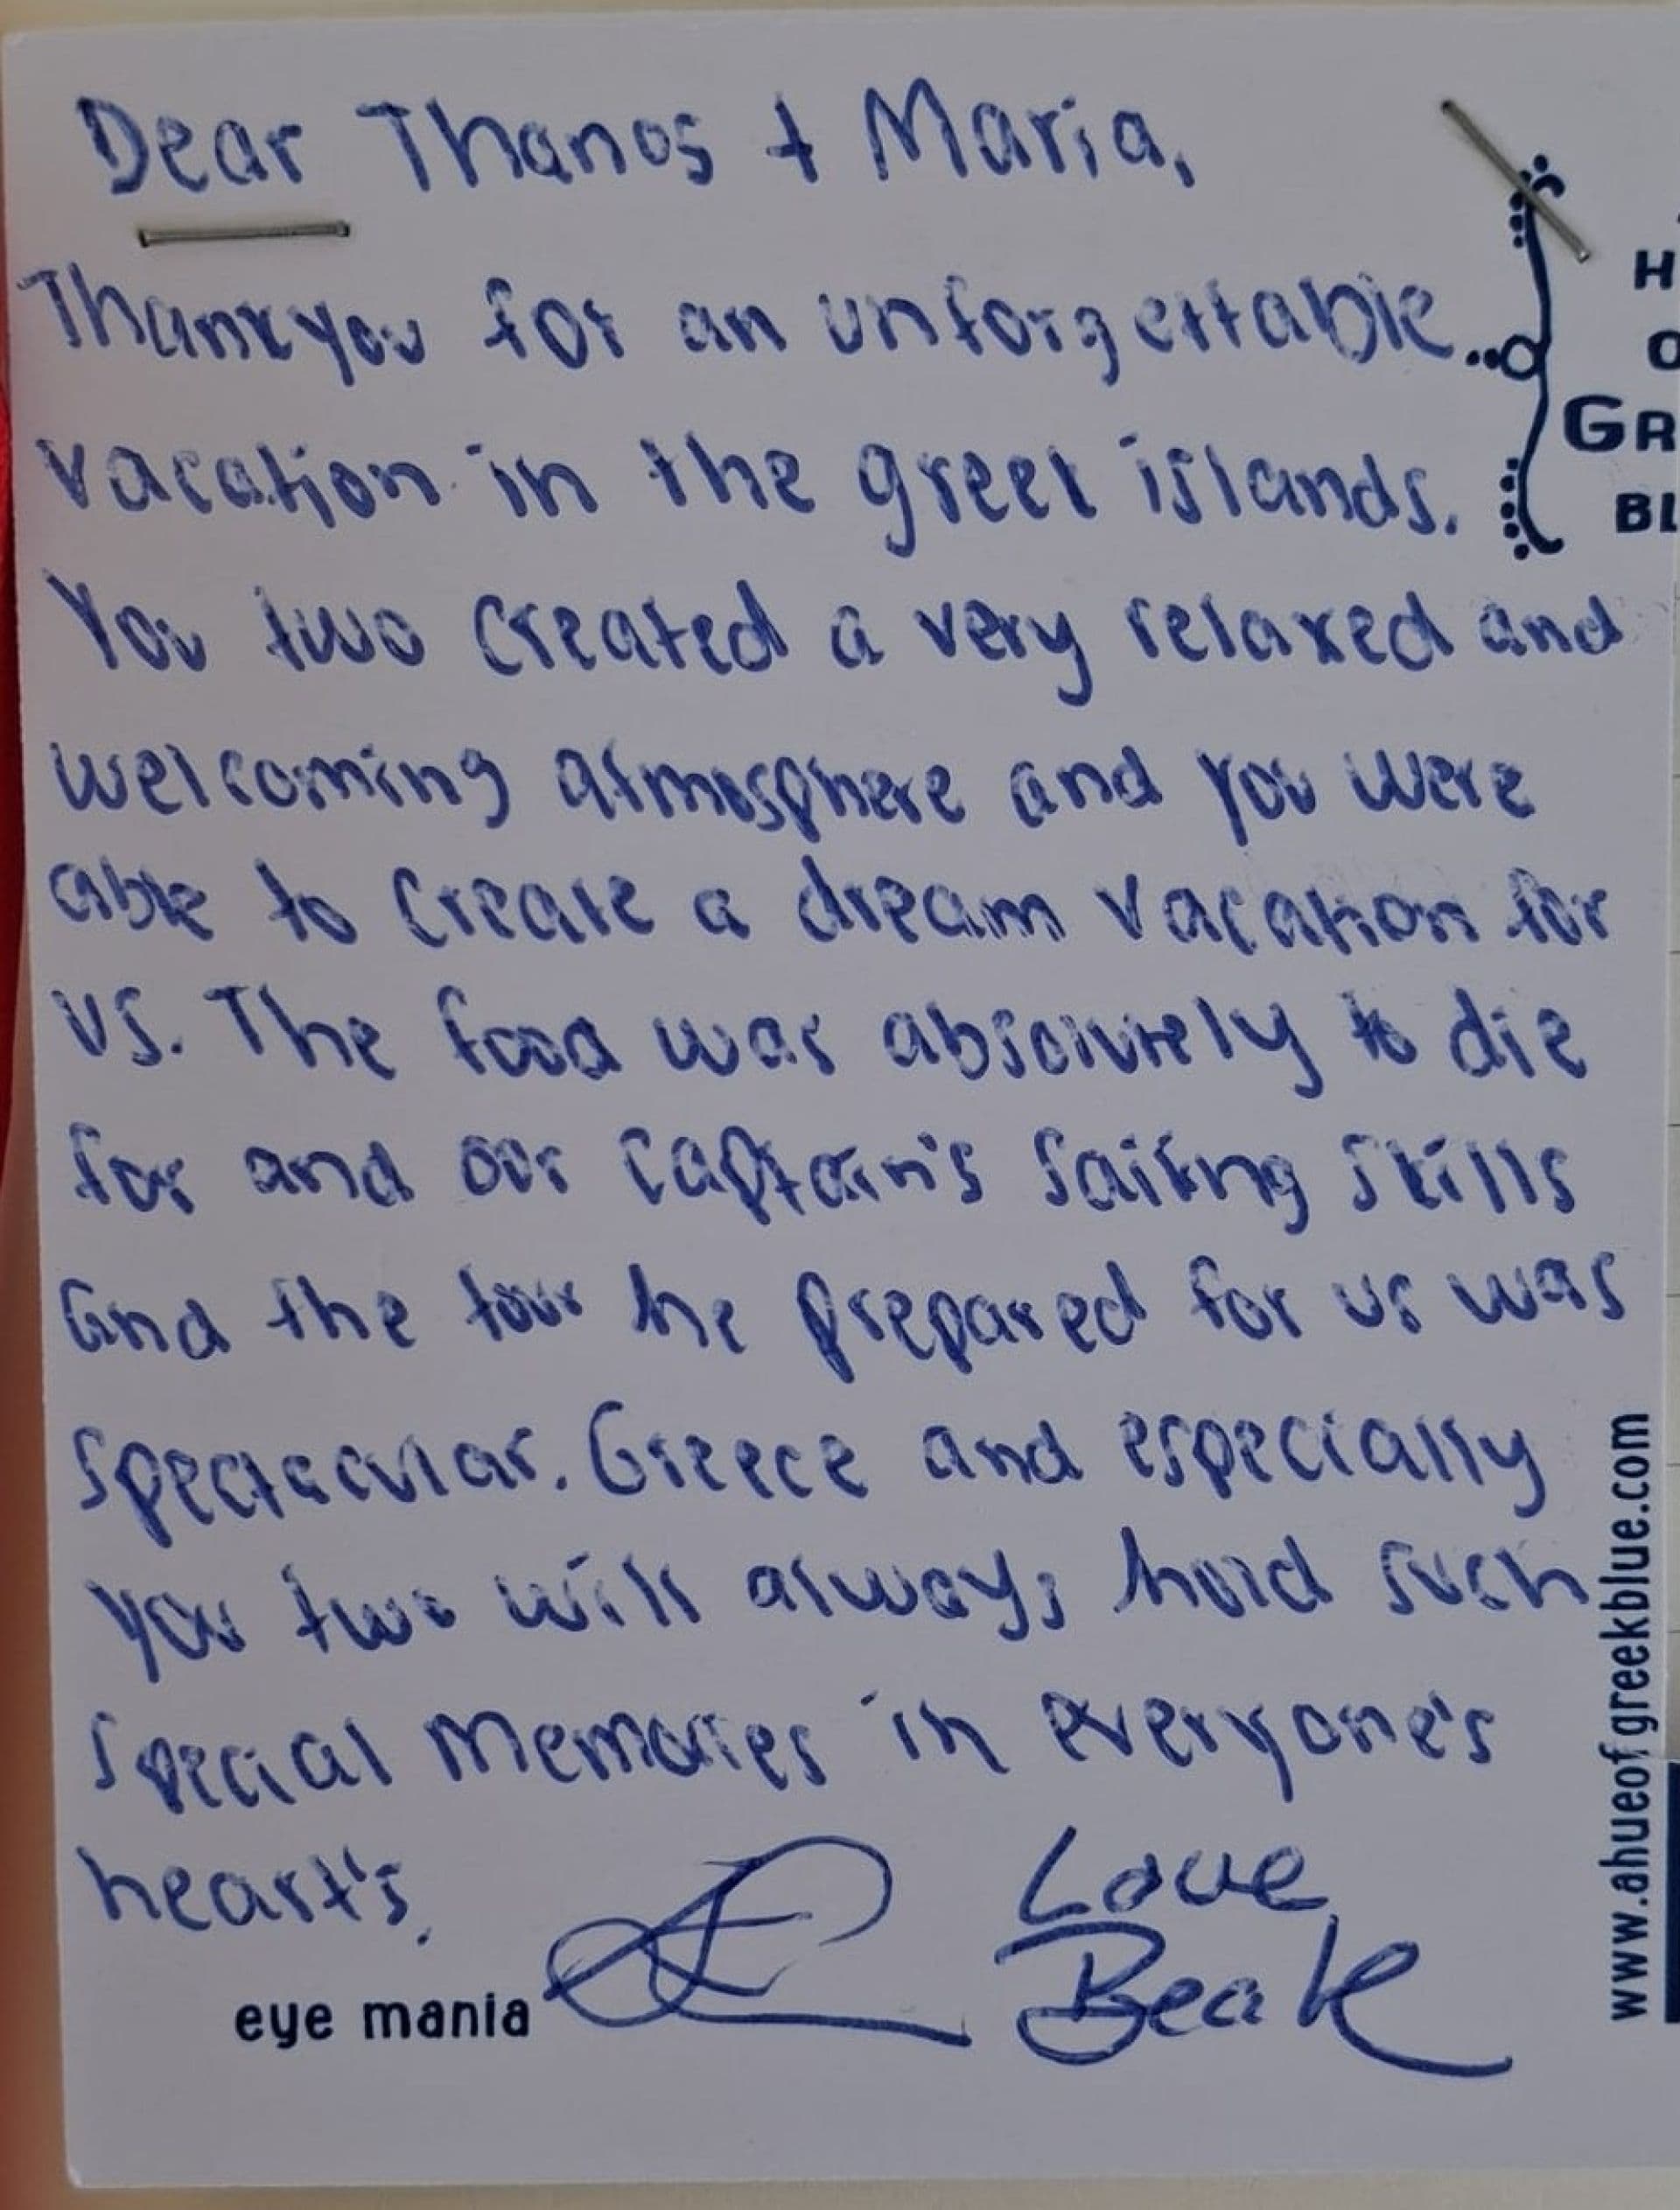 Dear Thanos + Maria,
Thankyou for an unforgettable
vacation in the greek islands.
You two created a very relaxed and
welcoming atmosphere and you were
able to create a dream vacation for
us. The food was absolutely to die
for and our captain's sailing skills
and the tour he prepared for us was
spectacular. Greece and especially
you two will always hold such
special memories in everyone's
heart's.
Love
Beak
eye mania
H
O
GR
BL
www.ahueofgreekblue.com